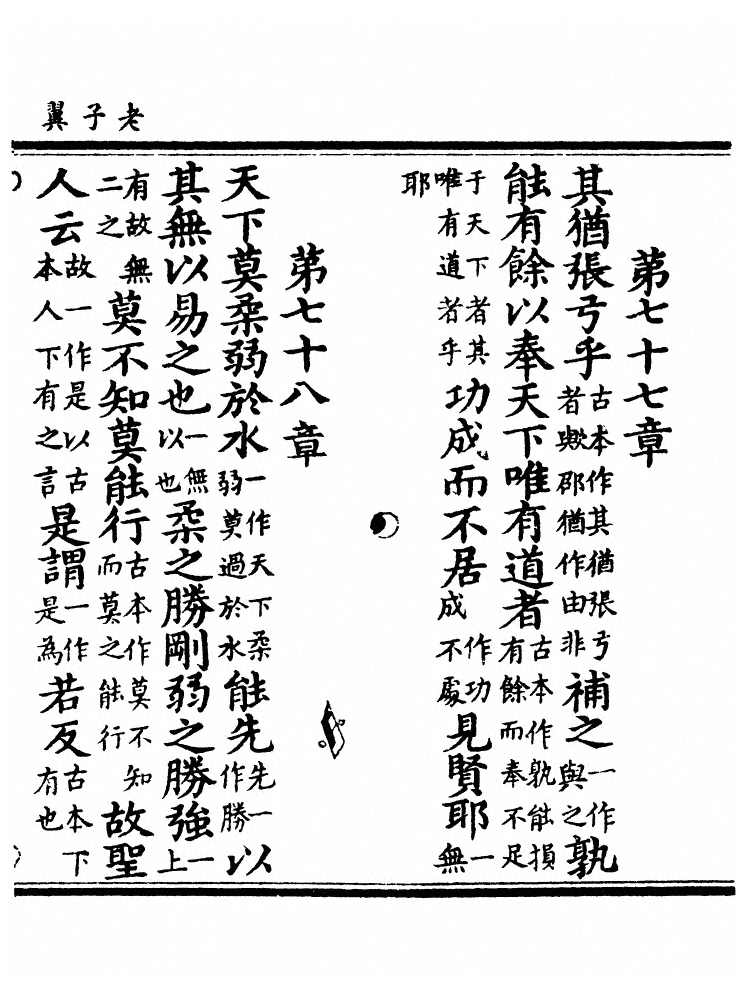 老子翼
第七十七章
其猶張弓乎古本作其猶張弓者歟郡猶作由非補之一作與之孰
能有餘以奉天下唯有道者古本作孰能損有餘而奉不足
于天下者其唯有道者乎功成而不居作功成不處見賢耶一無
耶
第七十八章
天下莫柔弱於水一作天下柔弱莫過於水能先先一作勝以
其無以易之也一無以也柔之勝剛弱之勝強一上
有故無二之莫不知莫能行古本作莫不知而莫之能行故聖
人云故一作是以古本人下有之言是謂一作是為若反古本下有也